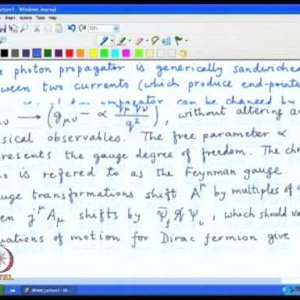 photon propagator is generically sandwiched
two currents (which produce end-points
propagator can be changed by
→ (gμν − α qμqν/q²), without altering
observables. The free parameter α
represents the gauge degree of freedom. The
is refered to as the Feynman gauge.
gauge transformations shift Aμ by multiples of
jμAμ shifts by ψ̄f q̸ ψi, which should
equations of motion for Dirac fermion give